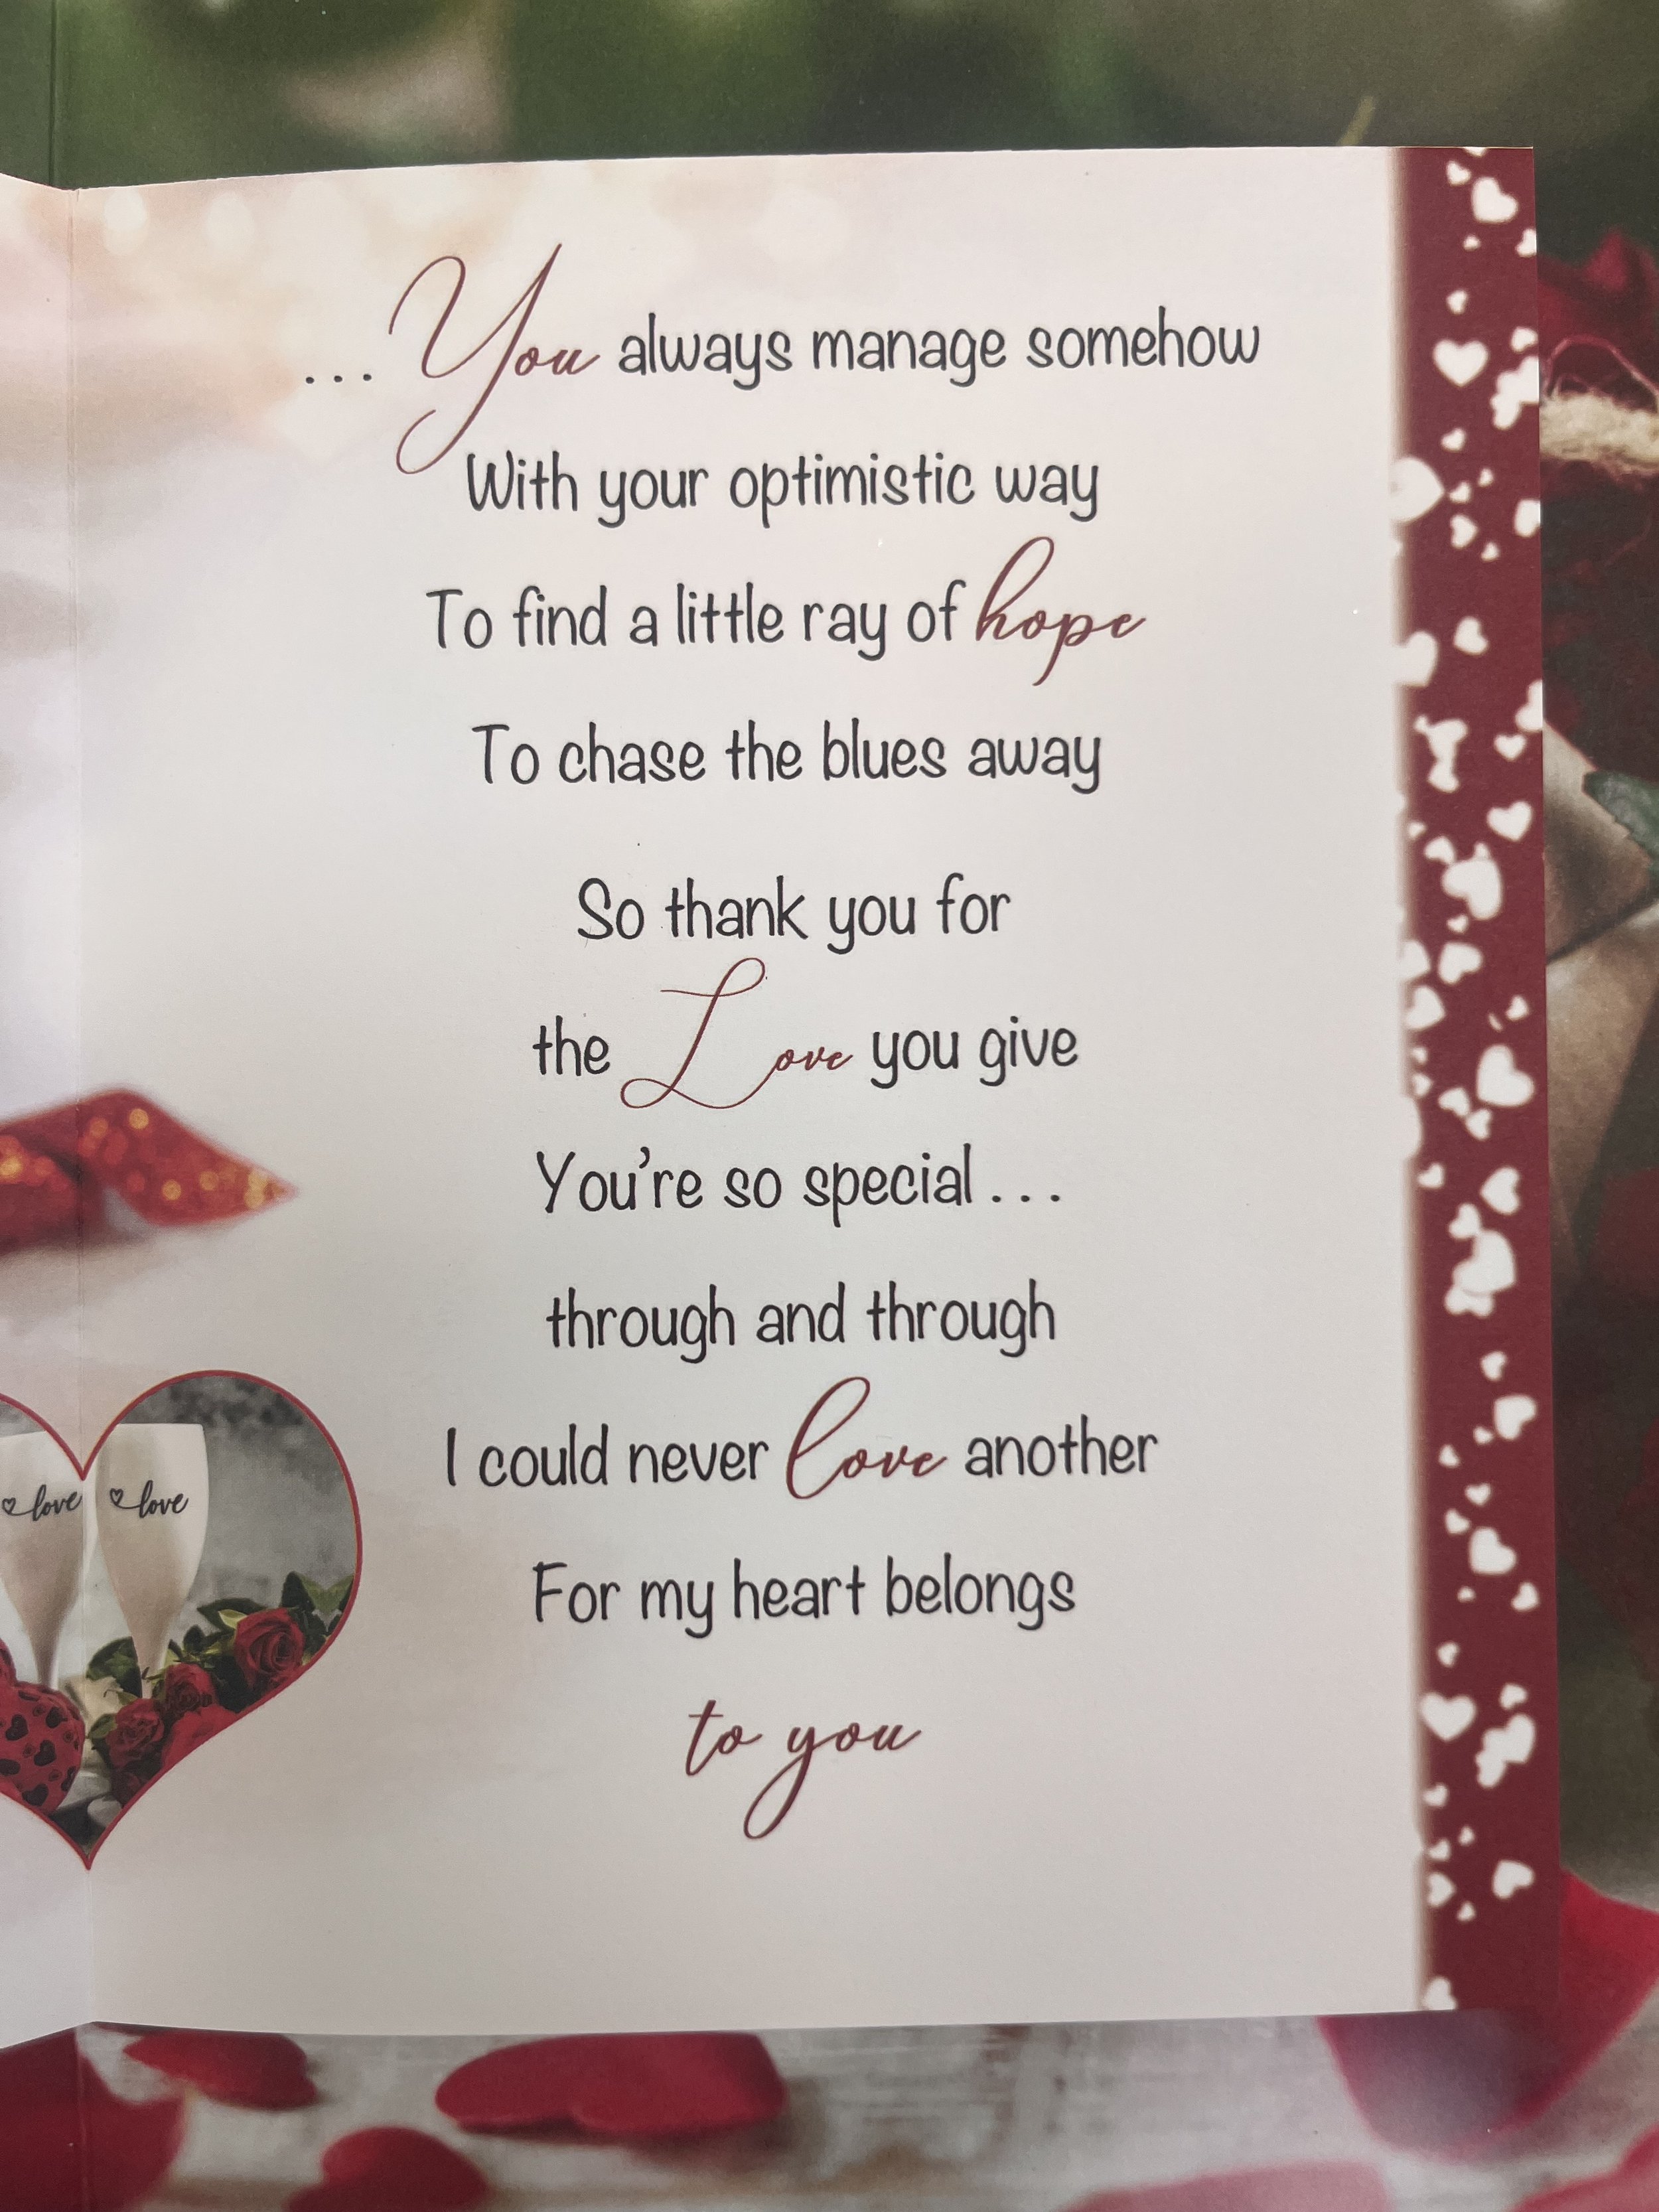 ... You always manage somehow
With your optimistic way
To find a little ray of hope
To chase the blues away
So thank you for
the Love you give
You're so special...
through and through
I could never love another
For my heart belongs
to you
love love